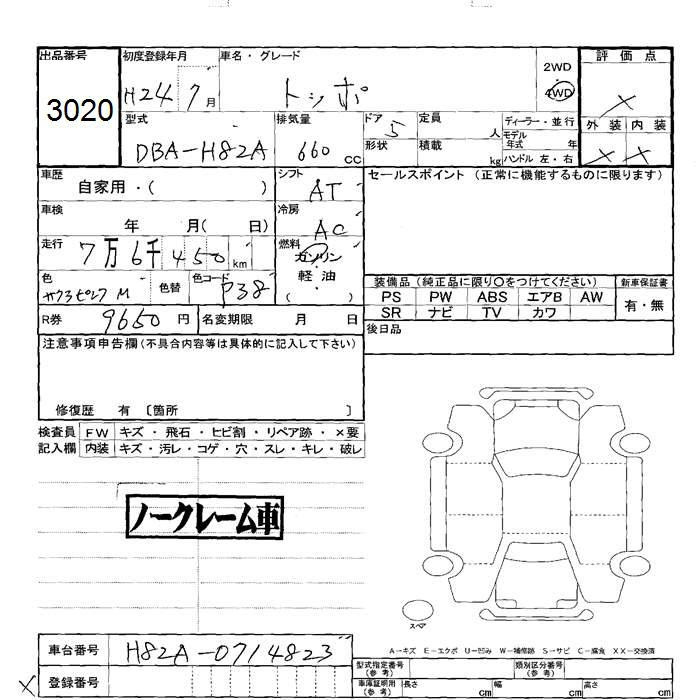 出品番号 初度登録年月 車名・グレード 2WD 評価点
3020 H24 7月 トッポ 4WD ×
型式 排気量 ドア 定員 ディーラー・並行 外装 内装
DBA-H82A 660 cc 5 人 モデル年式 年 × ×
形状 積載 kg ハンドル 左・右
車歴 シフト セールスポイント(正常に機能するものに限ります)
自家用・( ) AT
車検 冷房
年 月( 日) AC
走行 燃料
7万6千450km ガソリン・軽油
( )
色 色替 色コード 装備品(純正品に限り○をつけてください) 新車保証書
M P38 PS PW ABS エアB AW 有・無
SR ナビ TV カワ
R券 9650円 名変期限 月 日 後日品
注意事項申告欄(不具合内容等は具体的に記入して下さい)
修復歴 有 〔箇所 〕
検査員 FW キズ・飛石・ヒビ割・リペア跡・×要
記入欄 内装 キズ・汚レ・コゲ・穴・スレ・キレ・破レ
ノークレーム車
スペア
A-キズ E-エクボ U-凹み W-補修跡 S-サビ C-腐食 XX-交換済
車台番号 H82A-0714823
型式指定番号(参考) 類別区分番号(参考)
× 登録番号
車庫証明用(参考) 長さ cm 幅 cm 高さ cm